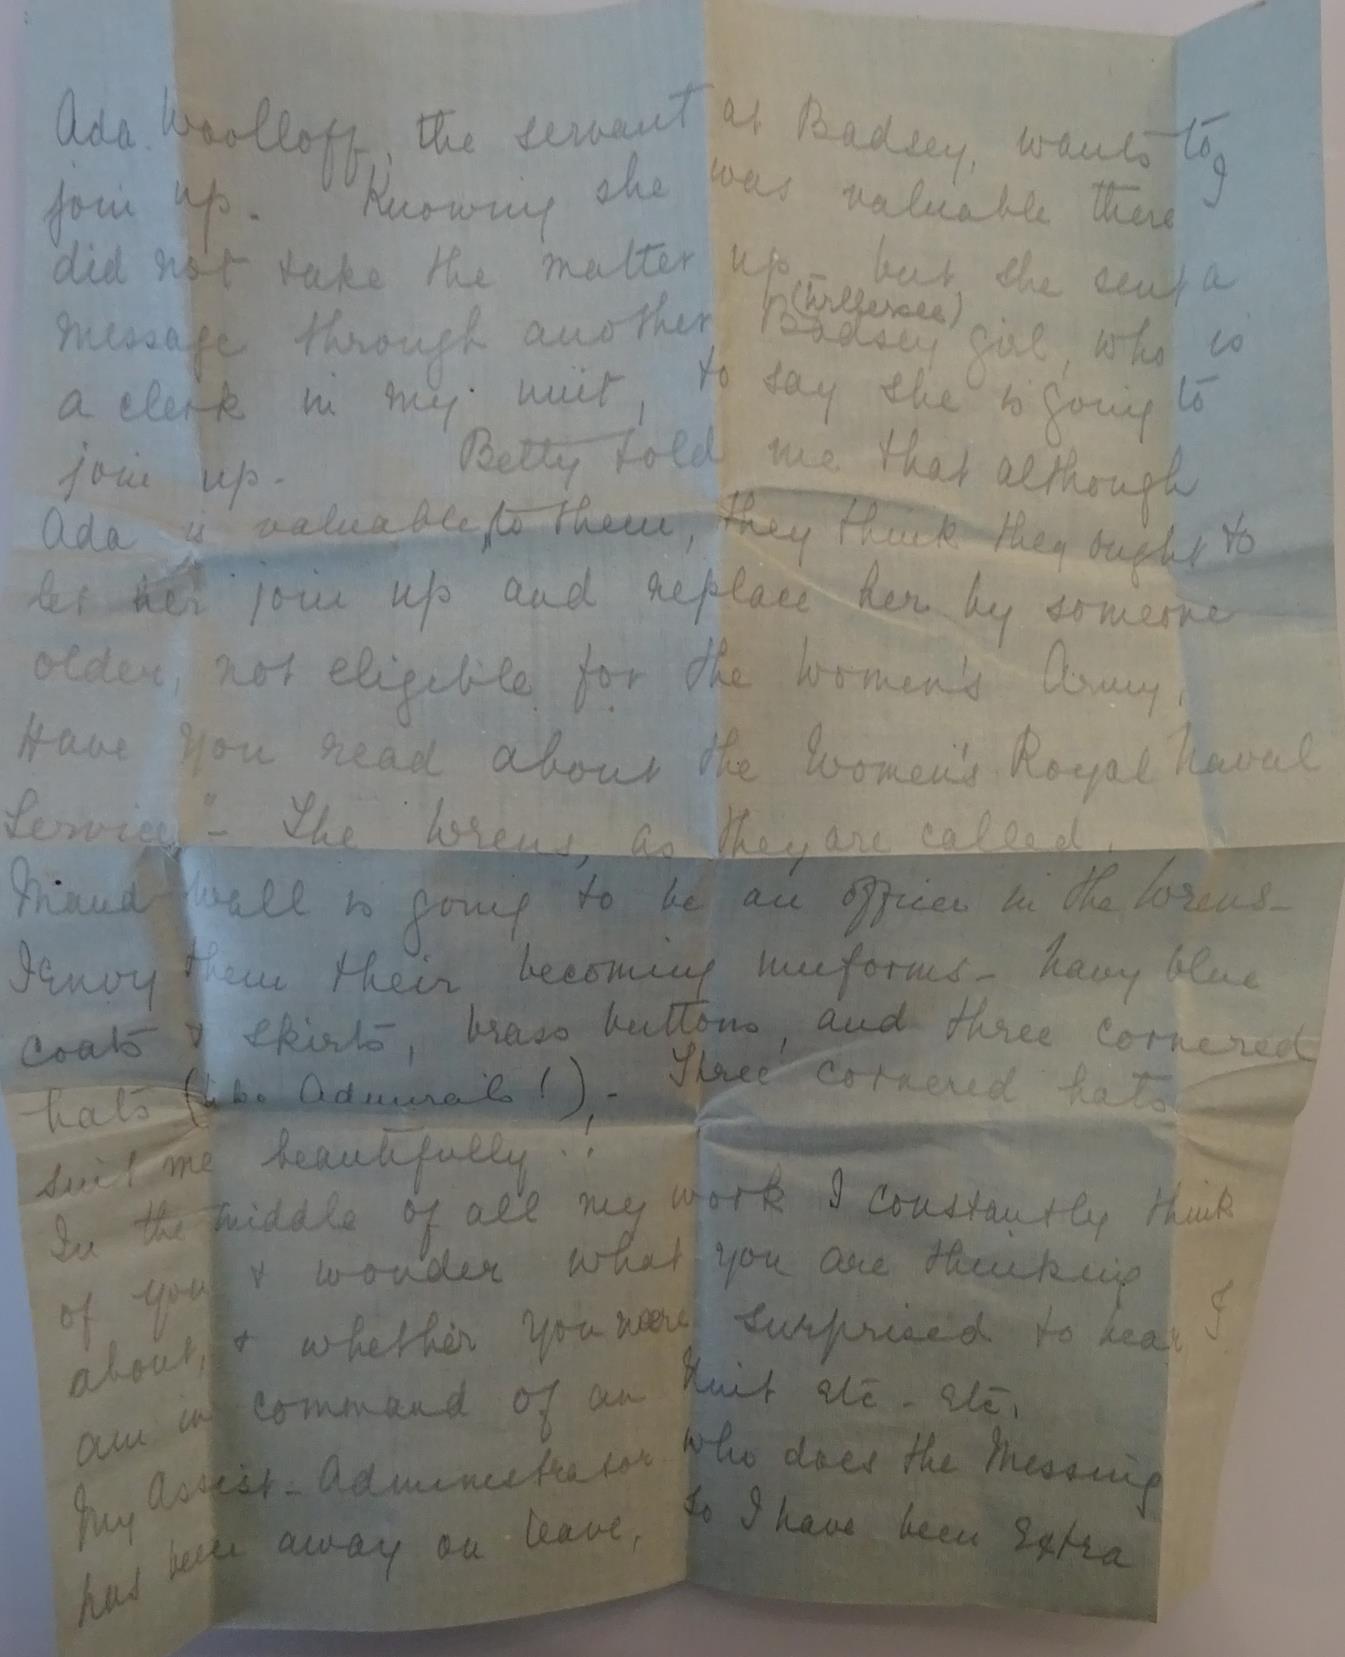 Ada Woolloff, the servant at Badsey, wants to
join up. Knowing she was valuable there I
did not take the matter up – but she sent a
message through another Badsey girl, who is
a clerk in my unit, to say she is going to
join up. Betty told me that although
Ada is valuable to them, they think they ought to
let her join up and replace her by someone
older, not eligible for the Women's Army.
Have you read about the Women's Royal Naval
Service" – The Wrens, as they are called.
Maud Wall is going to be an officer in the Wrens –
I envy them their becoming uniforms – Navy blue
coats & skirts, brass buttons, and three cornered
hats (like Admirals!), – Three cornered hats
suit me beautifully!!
In the middle of all my work I constantly think
of you & wonder what you are thinking
about, & whether you were surprised to hear I
am in command of an Unit etc – etc.
My Assist – Administrator who does the Messing
has been away on leave, so I have been extra